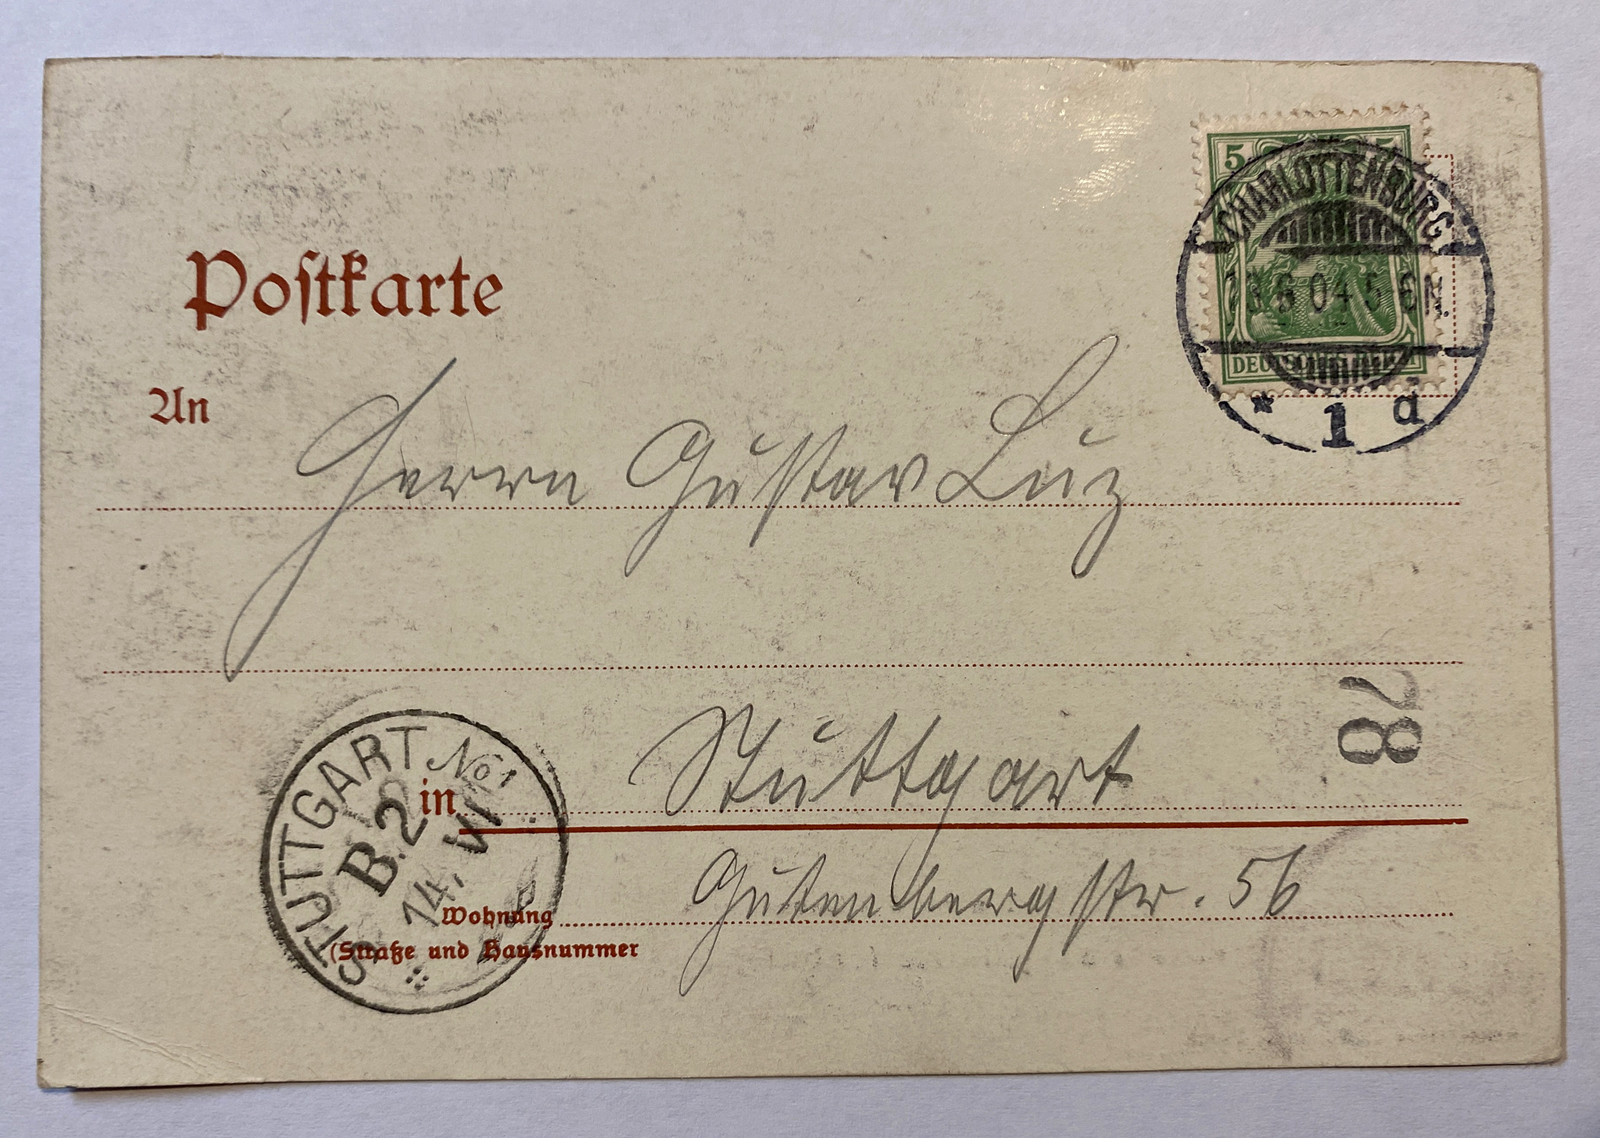 Postkarte
5 5
CHARLOTTENBURG
13 6 04 5-6N.
* 1 d
DEUTSCHES REICH
An
Herrn Gustav Luz
78
STUTTGART No 1
B. 2
14. VI
in Stuttgart
Wohnung Gutenbergstr. 56
(Straße und Hausnummer